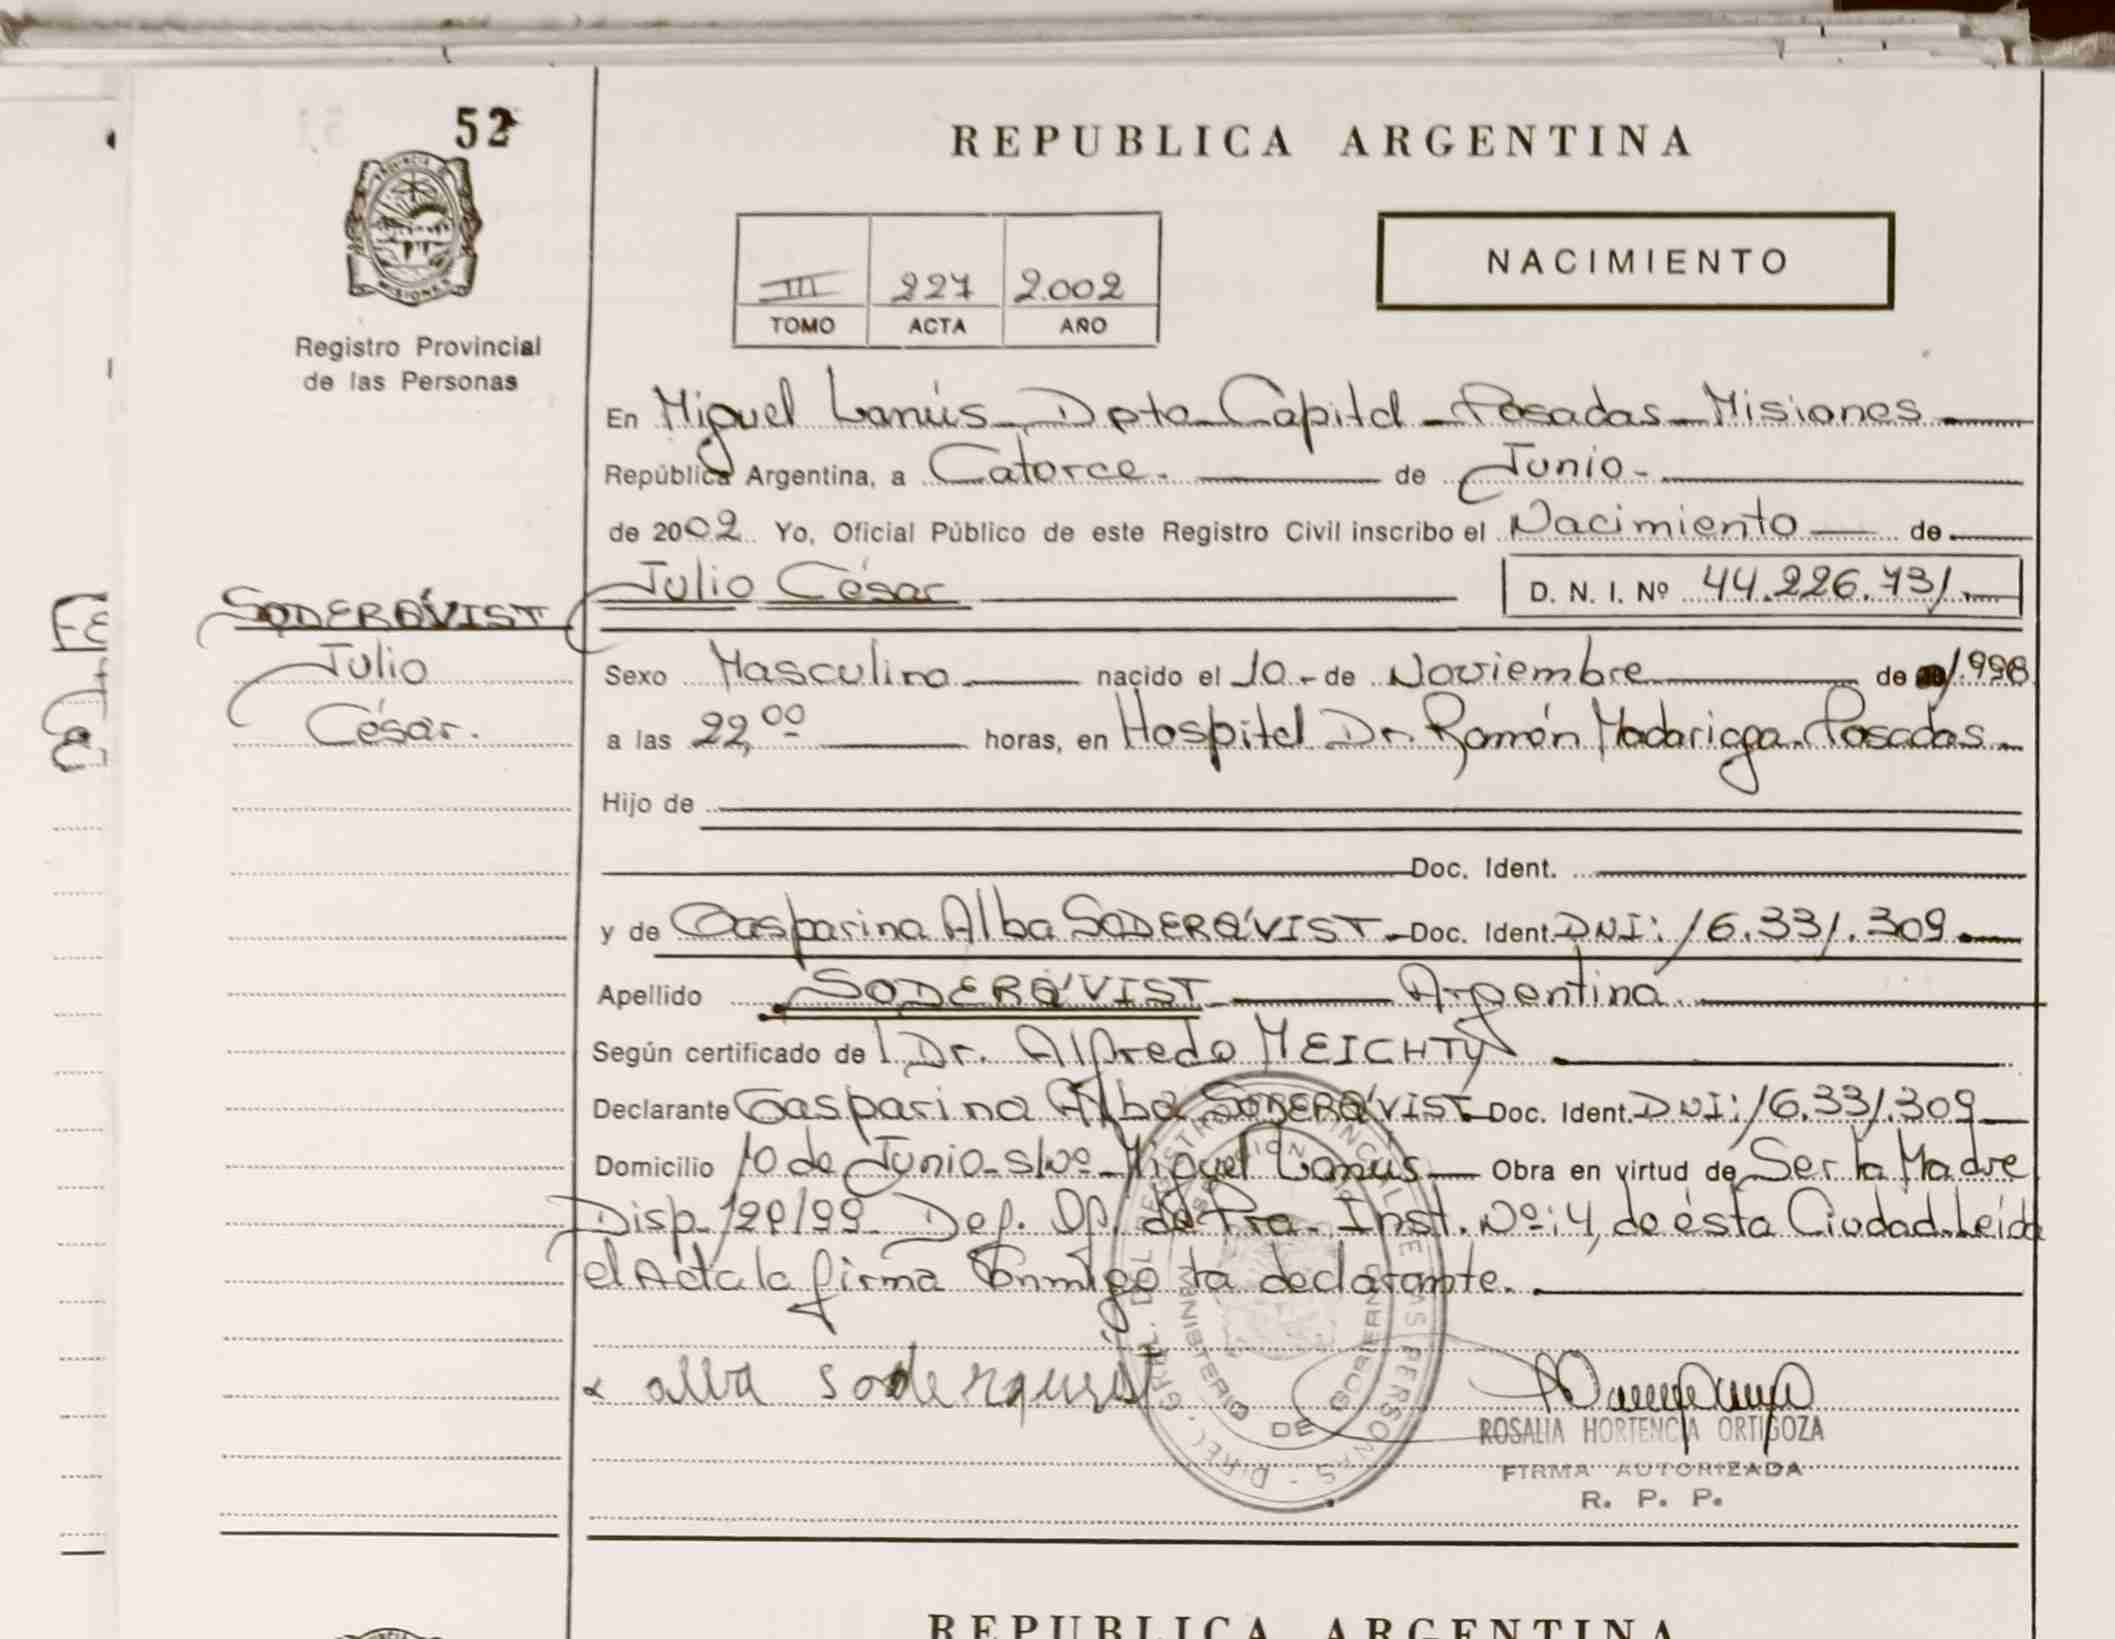 52
REPUBLICA ARGENTINA
PROVINCIA
MISIONES
NACIMIENTO
III 227 2.002
TOMO ACTA AÑO
Registro Provincial
de las Personas
En Miguel Lanús - Dpto Capital - Posadas - Misiones
República Argentina, a Catorce. de Junio.
de 2002. Yo, Oficial Público de este Registro Civil inscribo el Nacimiento de
Julio César D. N. I. Nº 44.226.731.
SODERQ'VIST
Julio
César.
Sexo Masculino nacido el 10 - de Noviembre de 1.998
a las 22,00 horas, en Hospital Dr. Ramón Madariaga. Posadas.
Hijo de
Doc. Ident.
y de Gasparina Alba SODERQ'VIST - Doc. Ident. DNI: 16.331.309
Apellido SODERQ'VIST Argentina
Según certificado del Dr. Alfredo MEICHTY
Declarante Gasparina Alba SODERQ'VIST Doc. Ident. DNI: 16.331.309
Domicilio 10 de Junio - s/nº - Miguel Lanús Obra en virtud de Ser la Madre
Disp. Def. Of. de Pra. Inst. Nº: 4, de ésta Ciudad. Leída
el Acta la firma Conmigo la declarante.
x alva soderquist
ROSALIA HORTENCIA ORTIGOZA
FIRMA AUTORIZADA
R. P. P.
MINISTERIO DE GOBIERNO
REPUBLICA ARGENTINA